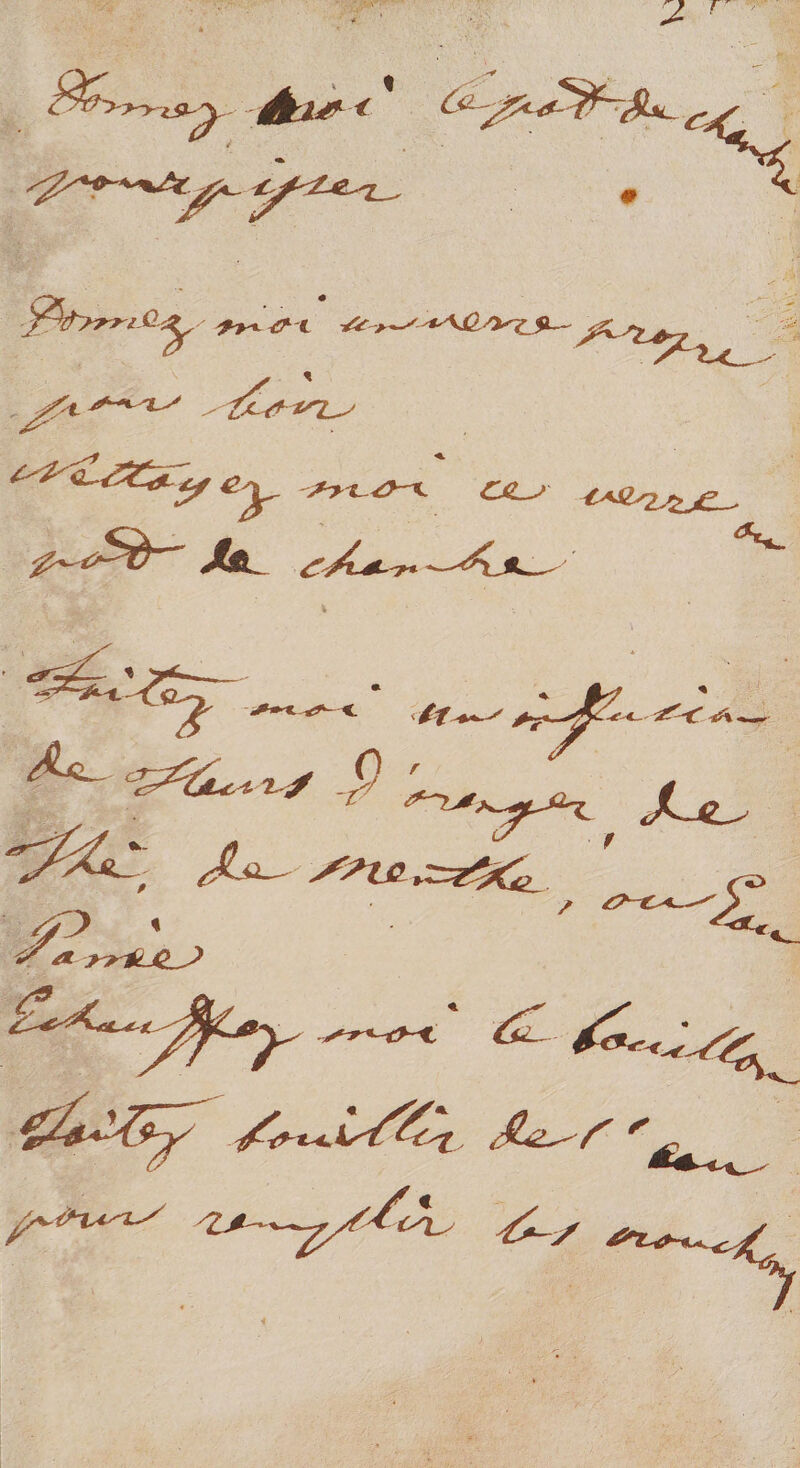 2
Donnez moi le pot de chambre
pour pisser
Donnez moi un verre propre
pour boir
Nettoyez moi ce verre ou
pot de chambre
Faitez moi un infusion
de fleurs d'oranger, de
Thé, de menthe, ou Eau
Panèe
Echauffez moi le bouillon
Faitez bouillir de l'eau
pour remplir les crouchons